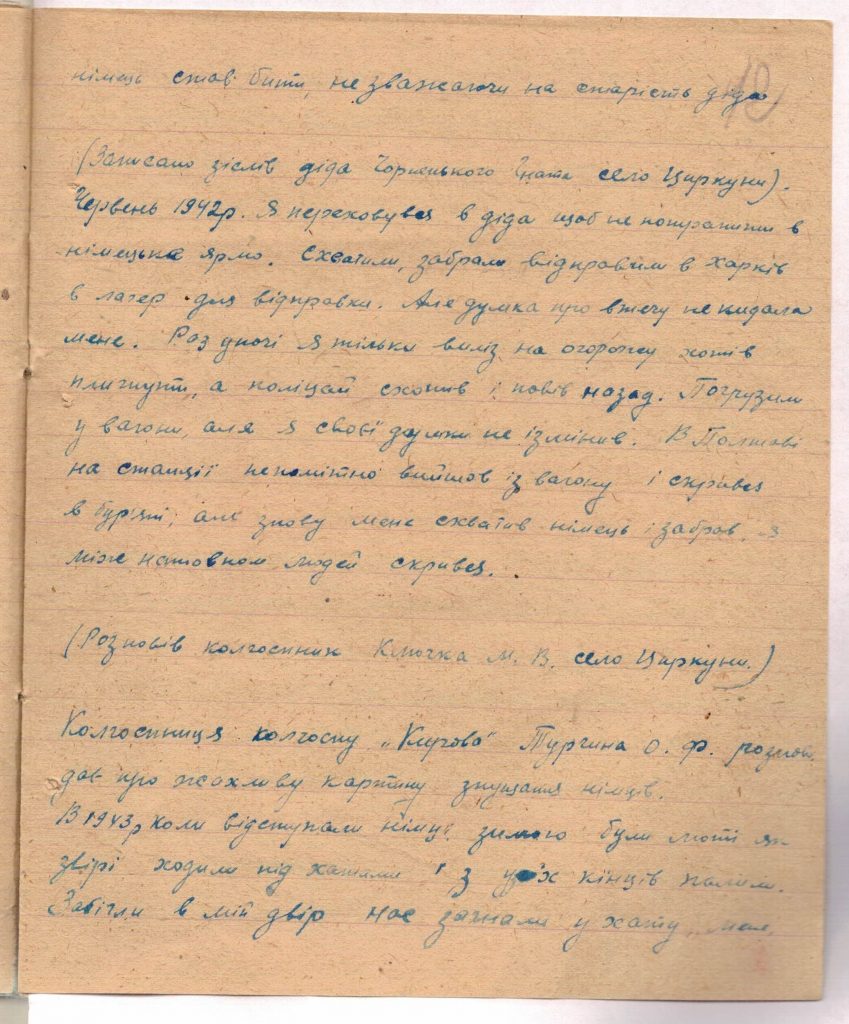 10
німець став бити, не зважаючи на старість діда
(Записано зіслів діда Чорненького Гната село Циркуни).
Червень 1942р. Я переховувся в діда щоб не потрапити в
німецьке ярмо. Схватили, забрали відправили в Харків
в лагер для відправки. Але думка про втечу не кидала
мене. Раз уночі я тільки виліз на огорожу хотів
плигнути, а поліцай схопив і повів назад. Погрузили
у вагони, але я свої думки не ізмінив. В Полтаві
на станції непомітно вийшов із вагону і скрився
в бур'яні, але знову мене схватив німець і забрав. Я
між натовпом людей скрився.
(Розповів колгоспник Клочка М. В. село Циркуни.)
Колгоспниця колгоспу „Кірова" Тургина О. Ф. розпові
дає про жахливу картину знущання німців.
В 1943р коли відступали німці зимою були люті як
звірі ходили під хатами і з усіх кінців палили.
Забігли в мій двір нас загнали у хату, мене,